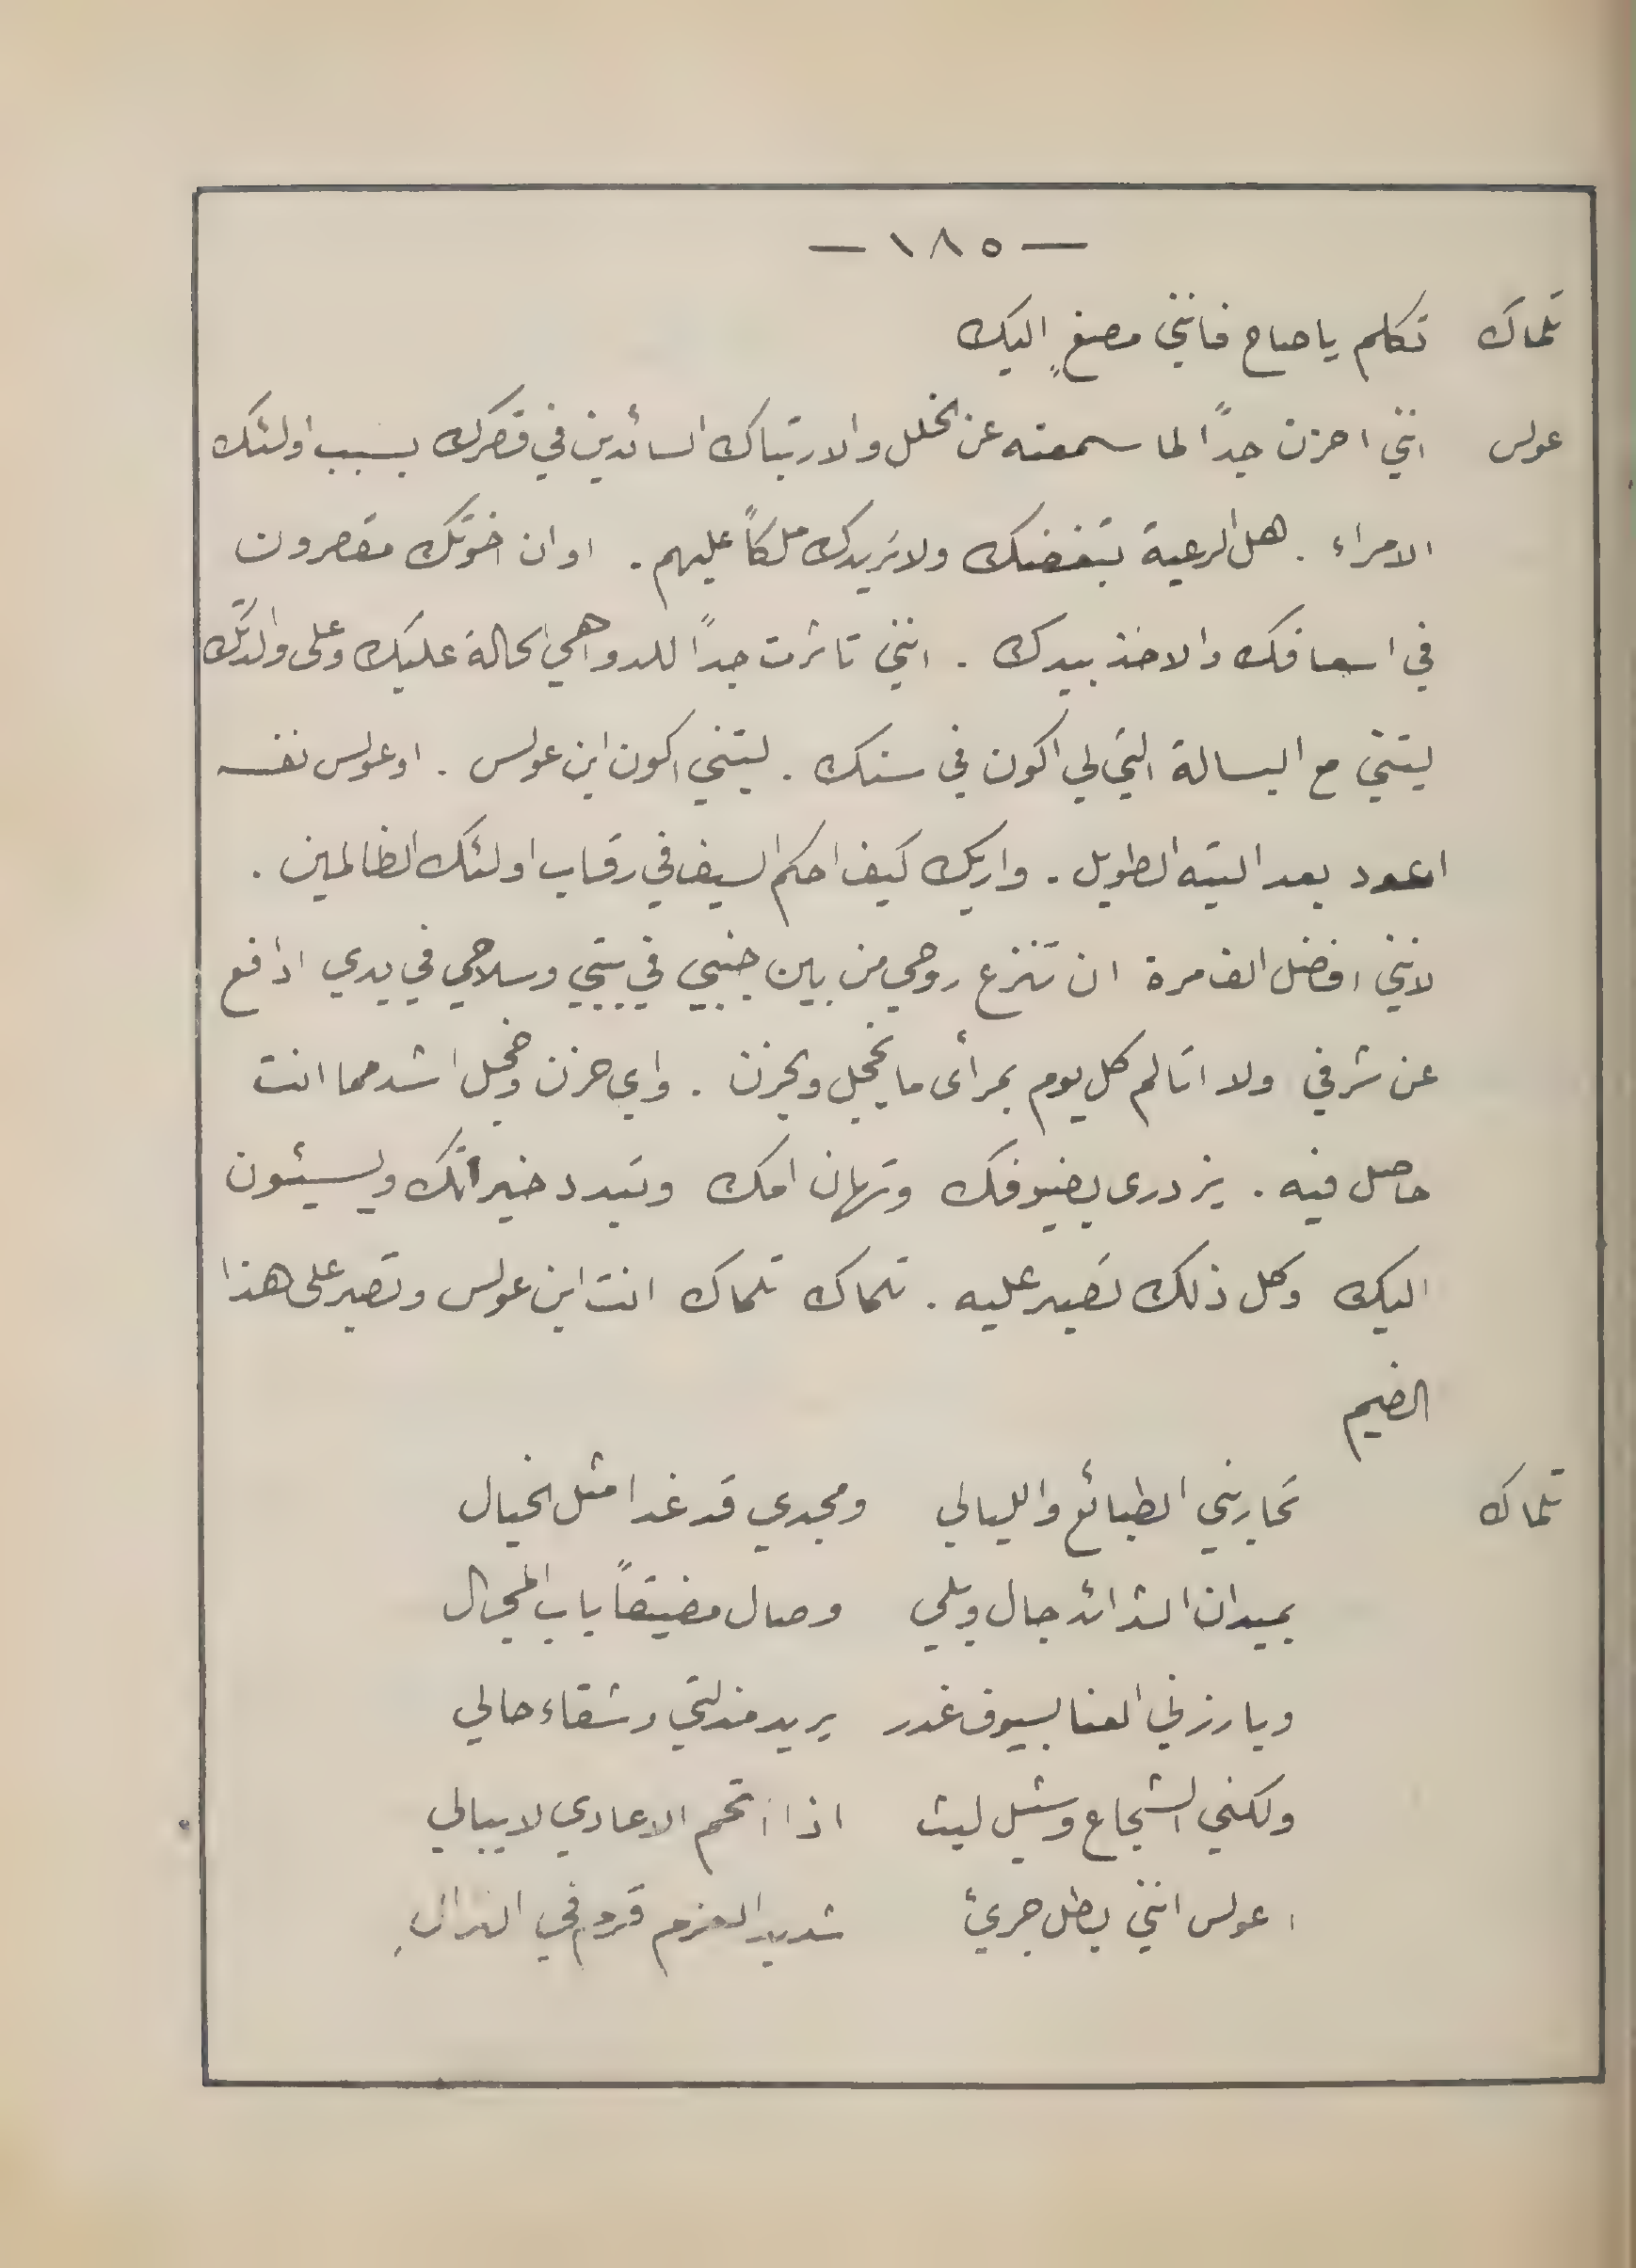 — ١٨٥ —
تلماك تكلم يا صاح فانني مصغٍ اليك
عولس انني احزن جداً لما سمعته عن الخلل والارتباك السائدين في قصرك بسبب اولئك
الامراء . هل الرعية تبغضك ولا تريدك ملكاً عليهم . او ان اخوتك مقصرون
في اسعافك والاخذ بيدك . انني تاثرت جداً للدواهي الحالة عليك وعلى والدتك
ليتني مع البسالة التي لي اكون في سنك . ليتني اكون ابن عولس . او عولس نفسه
اعود بعد التيه الطويل . واريك كيف احكم السيف في رقاب اولئك الظالمين .
لانني افضل الف مرة ان تنزع روحي من بين جنبي في بيتي وسلاحي في يدي ادافع
عن شرفي ولا اتالم كل يوم بمرأى ما يخجل ويحزن . واي حزن وخجل اشد مما انت
حاصل فيه . يزدرى بضيوفك وتهان امك وتبدد خيراتك ويسيئون
اليك وكل ذلك تصبر عليه . تلماك تلماك انت ابن عولس وتصبر على هذا
الضيم
تلماك تحاربني الطبائع والليالي ومجدي قد غدا مثل الخيال
بميدان الشدائد جال ويلي وصال مضيقاً باب المجال
وبارزني العنا بسيوف غدر يريد مذلتي وشقاء حالي
ولكني الشجاع وشبل ليث اذا اقتحم الاعادي لا يبالي
اعولس انني بطل جريئ شديد العزم قرم في النزالِ